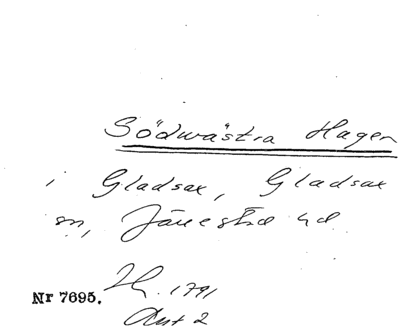 Södwästra Hagen
i Gladsax, Gladsax
sn, Järrestad hd
1791
Nr 7695.
Akt 2